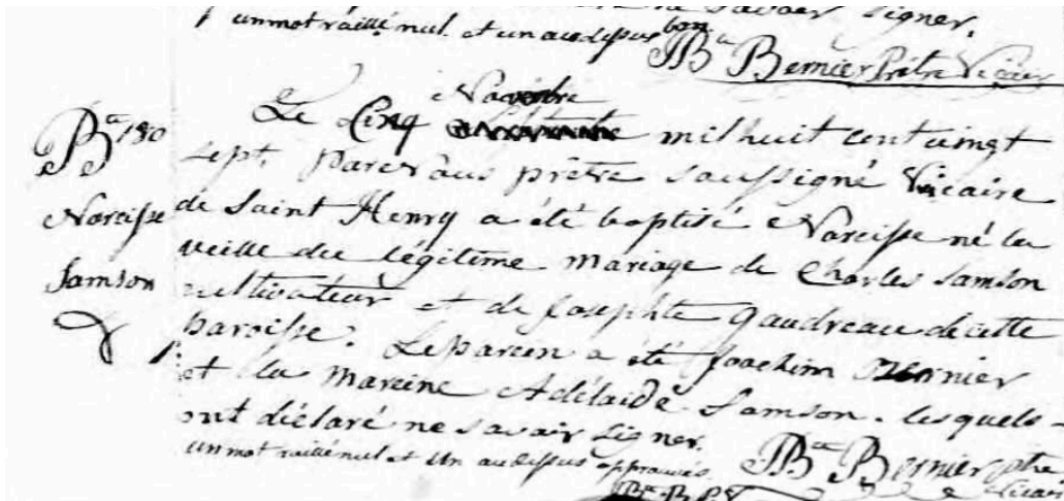 savoir signer.
un mot raillé nul et un au dessus bon.
JBte Bernier Prêtre Vicaire
B. 180
Narcisse
Samson
Novembre
Le Cinq mil huit cent vingt
sept. par nous prêtre soussigné Vicaire
de Saint Henry a été baptisé Narcisse né la
veille du légitime mariage de Charles Samson
cultivateur et de Josephte Gaudreau de cette
paroisse. Le parein a été Joachim
et la mareine Adélaïde Samson. lesquels
ont déclaré ne savoir signer.
un mot raillé nul et un au dessus approuvé.
JBte Bernier ptre
Vicaire